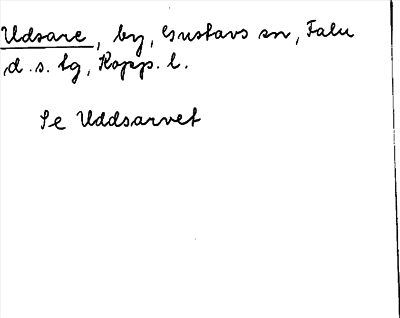 Udsare, by, Gustavs sn, Falu
d.s. tg, Kopp. l.
Se Uddsarvet